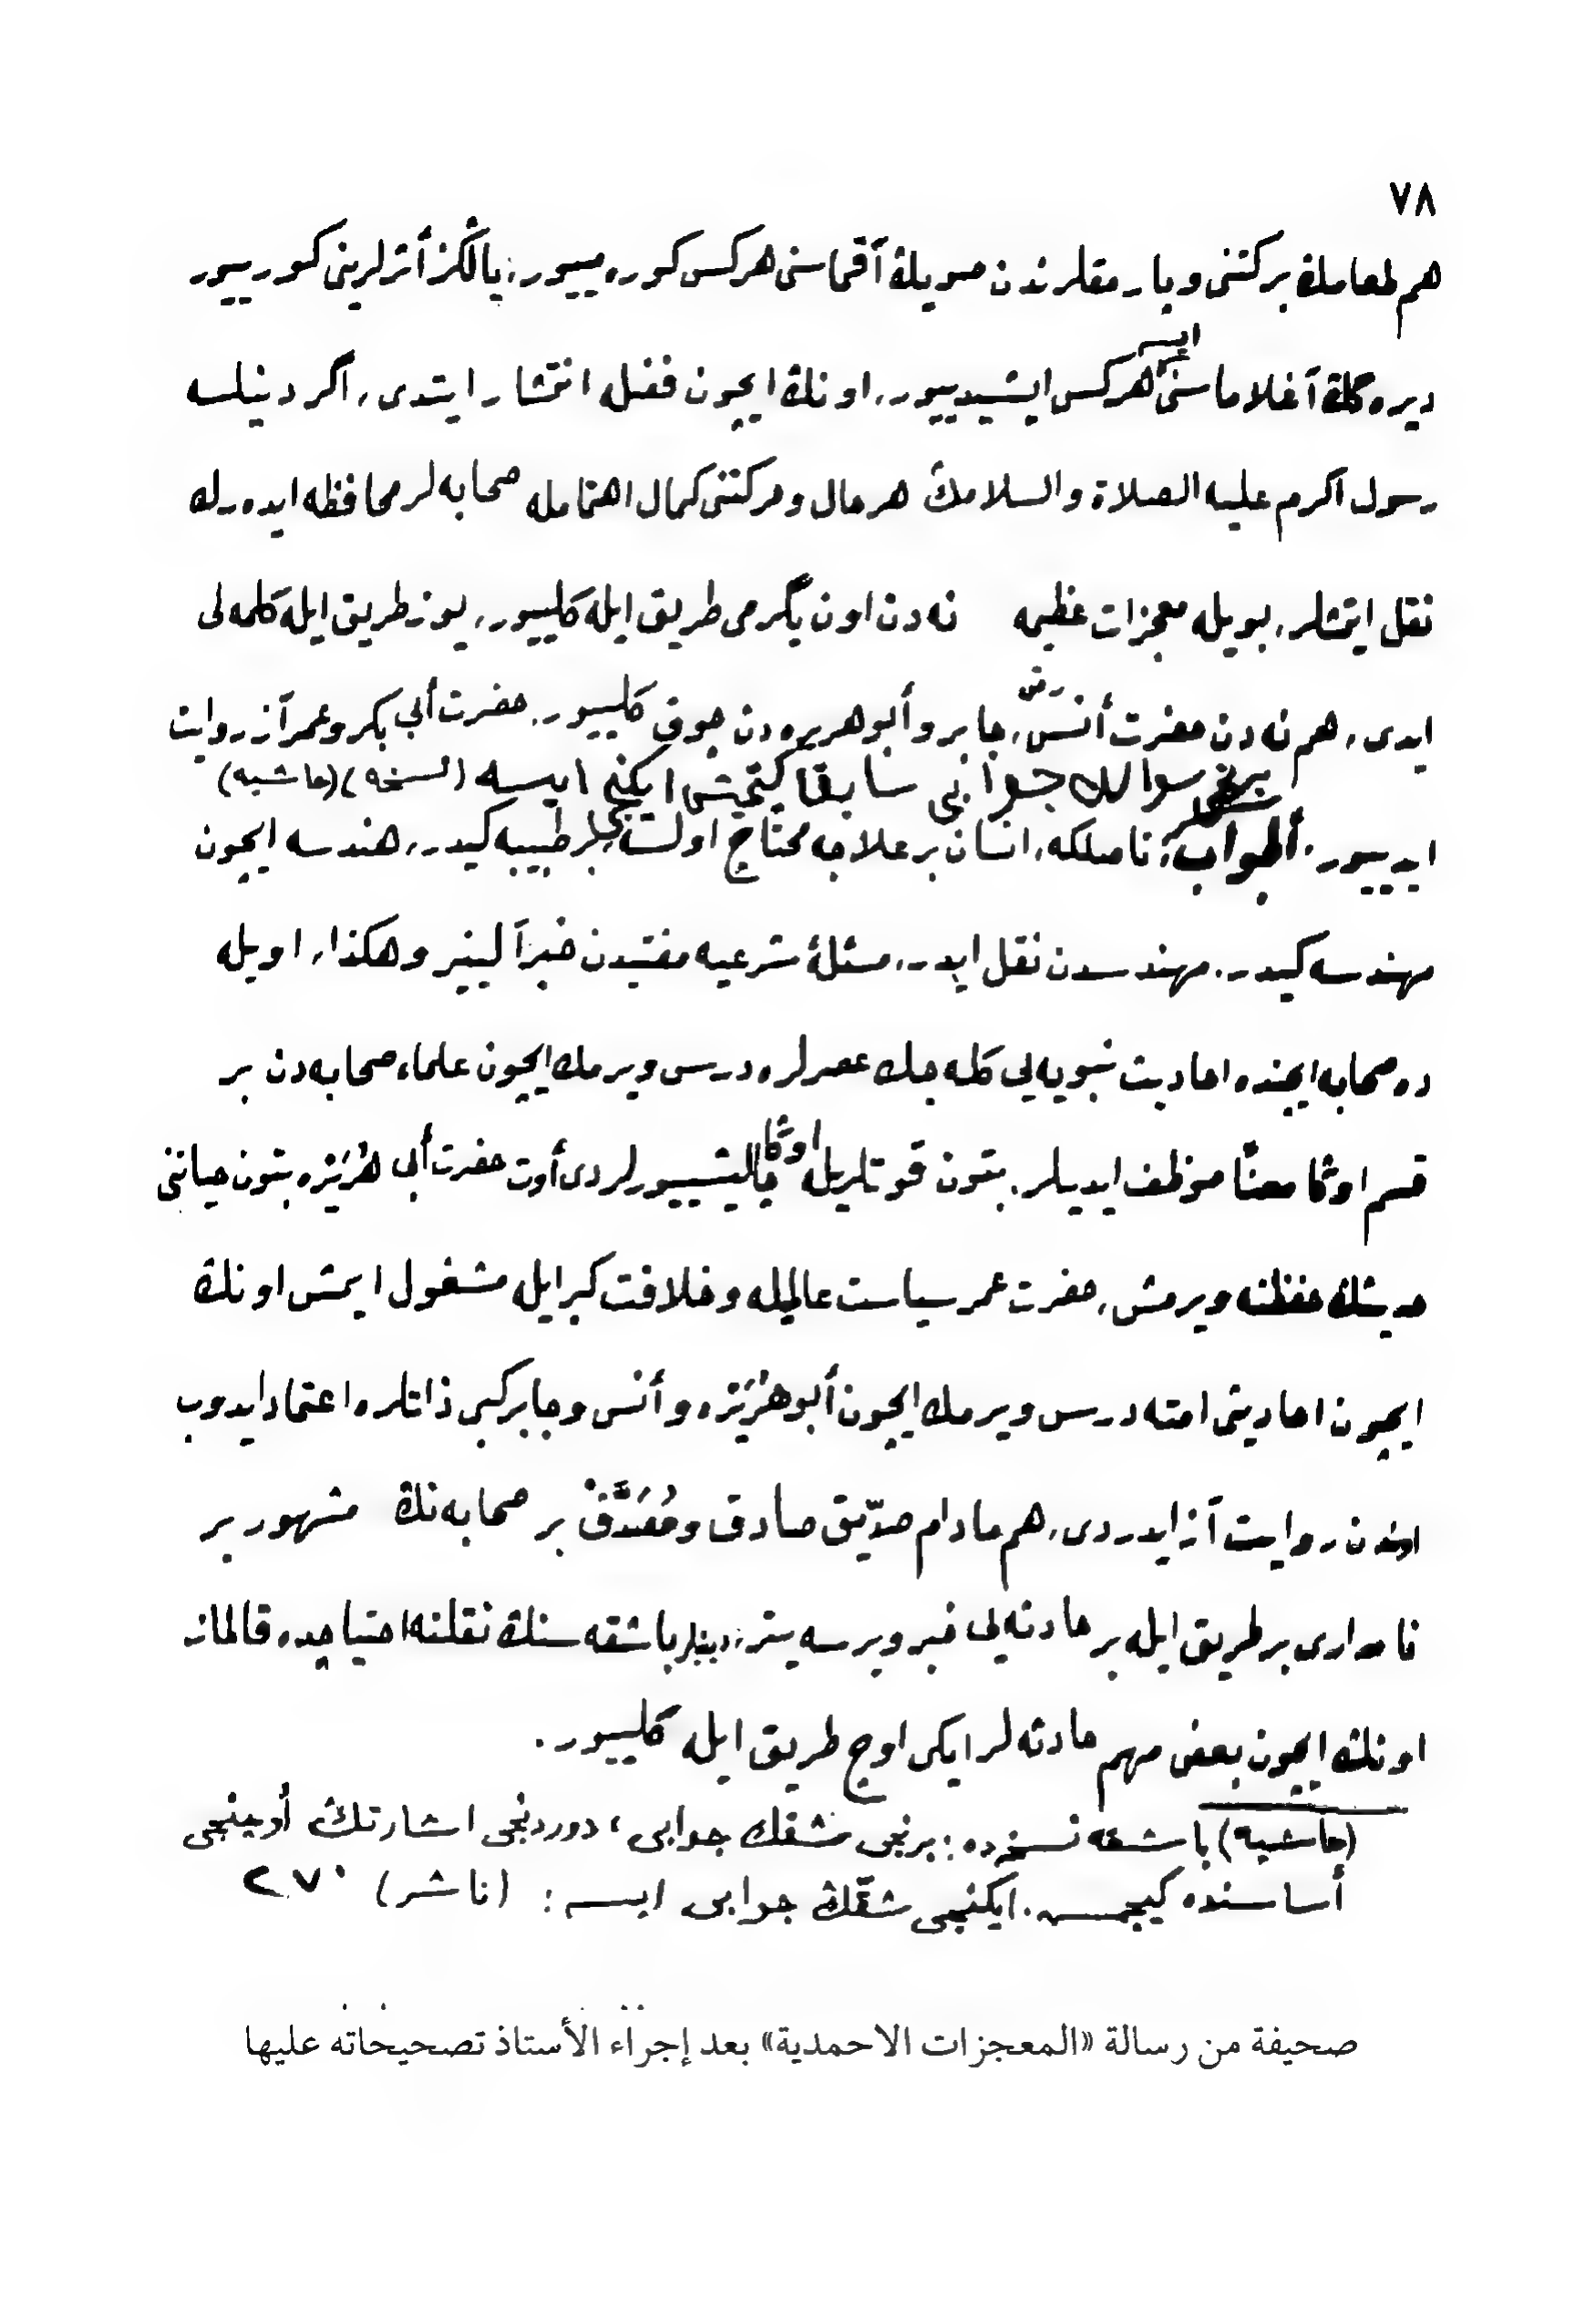 ٧٨
هم طعامڭ بركتنى و پارمقلرندن صويڭ آقماسنى هركس كوره ميیور، يالڭز أثرلرينى كورييور
ايسه
ديره گڭ آغلاماسنى هركس ايشيدييور، اونڭ ايچون فضله انتشار ايتدى، اگر دينيلسه
رسول اكرم عليه الصلاة والسلامڭ هر حال و حركتنى كمال اهتمامله صحابه لر محافظه ايده رك
نقل ايتمشلر، بويله معجزات عظيمه نه دن اون يگرمى طريق ايله كلييور، يوز طريق ايله كلمه لى
ايدى، هم نه دن حضرت أنس رض، جابر و أبو هريره دن چوق كلييور. حضرت أبى بكر و عمر آز روايت
برنجى سوالك جوابى سابقا كچمش ايكنجى ايسه (نسخه) (حاشيه)
ايدييور. ألجواب، ناصلكه، انسان بر علاجه محتاج اولسه، بر طبيبه كيدر، هندسه ايچون
مهندسه كيدر. مهندسدن نقل ايدر، مسئلهٔ شرعيه مفتيدن خبر آلينير وهكذا، اويله
ده صحابه ايچنده احاديث نبويه يى كله جك عصرلره درس ويرمك ايچون علماء صحابه دن بر
قسم اوڭا معنًا موظف ايديلر. بتون قوتلريله اوڭا چاليشييورلردى أوت حضرت أبى هُرَيْرَه بتون حياتنى
حديثڭ حفظنه ويرمش، حضرت عمر سياست عالميله و خلافت كبرا ايله مشغول ايمش اونڭ
ايچون احاديثى امته درس ويرمك ايچون أبو هُرَيْرَه و أنس و جابر كبى ذاتلره اعتماد ايدوب
اوندن روايت آز ايدردى، هم مادام صدّيق صادق و مُصَدَّقْ بر صحابه نڭ مشهور بر
نامدارى بر طريق ايله بر حادثه يى خبر ويرسه يتر، دينيلر باشقه سنڭ نقلنه احتياجده قالماز
اونڭ ايچون بعض مهم حادثه لر ايكى اوچ طريق ايله كلييور.
(حاشيه) باشقه نسخه ده: برنجى شقك جوابى، دوردنجى اشارتڭ أوچينجى
أساسنده كچمش. ايكنجى شقّڭ جوابى ايسه: (ناشر) ٢٧٠
صحيفة من رسالة «المعجزات الاحمدية» بعد إجراء الأستاذ تصحيحاته عليها